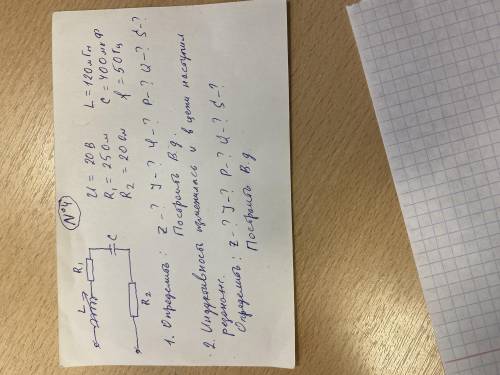 №4
L
R₁
C
R₂
U = 20 В
R₁ = 25 Ом
R₂ = 20 Ом
L = 120 мГн
C = 400 мкФ
f = 50 Гц
1. Определить: Z-? I-? φ-? P-? Q-? S-?
Построить В.д.
2. Индуктивность изменилась и в цепи наступил
резонанс.
Определить: Z-? I-? P-? Q-? S-?
Построить В.д